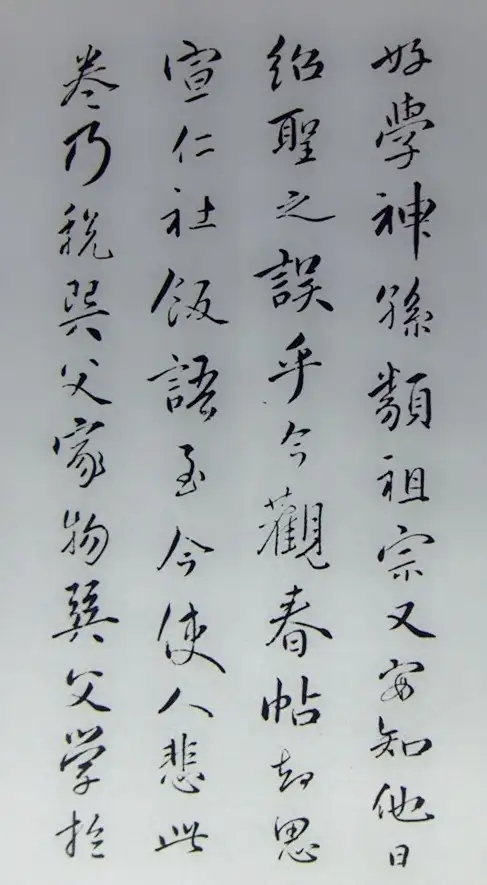 好學神孫類祖宗又安知他日
紹聖之誤乎今觀春帖却思
宣仁社飯語至今使人悲此
卷乃稅巽父家物巽父学於